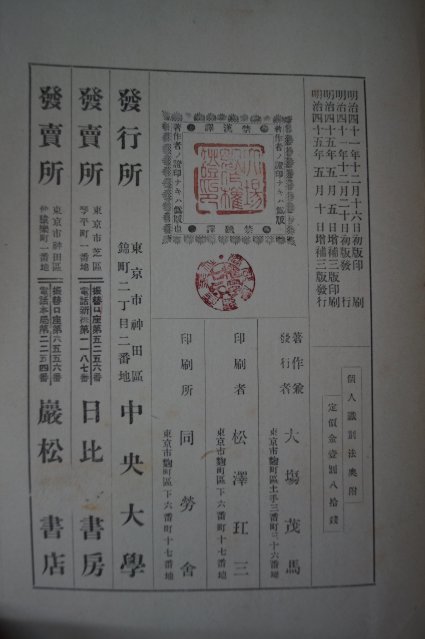 明治四十一年十二月十六日初版印刷
明治四十一年十二月二十日初版發行
明治四十五年五月五日增補三版印刷
明治四十五年五月十日增補三版發行
個人識別法奧附
定價金壹圓八拾錢
著作兼發行者 大塲茂馬
東京市麴町區土手三番町三十六番地
印刷者 松澤玒三
東京市麴町區下六番町十七番地
印刷所 同勞舍
東京市麴町區下六番町十七番地
禁漢譯
著作者ノ證印ナキハ僞版也
發行所 東京市神田區錦町二丁目二番地 中央大學
發賣所 東京市芝區琴平町一番地 振替口座第五二五六番 電話新橋第一一八七番 日比書房
發賣所 東京市神田區 一番地 振替口座第六五五六番 電話本局第二二五四番 巖松書店